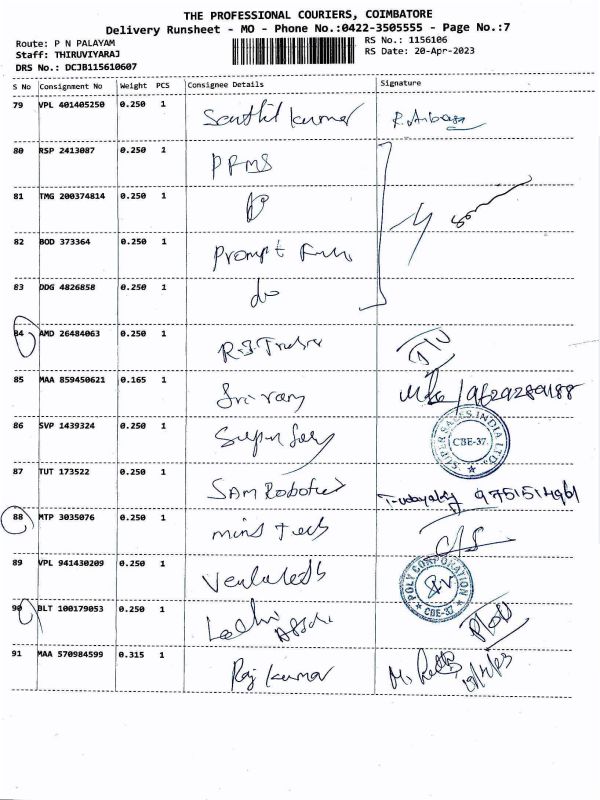 THE PROFESSIONAL COURIERS, COIMBATORE
Delivery Runsheet - MO - Phone No.:0422-3505555 - Page No.:7
Route: P N PALAYAM RS No.: 1156106
Staff: THIRUVIYARAJ RS Date: 20-Apr-2023
DRS No.: DCJB115610607
S No Consignment No Weight PCS Consignee Details Signature
79 VPL 401405250 0.250 1 Senthil Kumar
80 RSP 2413087 0.250 1 PRMS
81 TMG 200374814 0.250 1
82 BOD 373364 0.250 1 Prompt
83 DDG 4826858 0.250 1 do
84 AMD 26484063 0.250 1
85 MAA 859450621 0.165 1 Sri ram
86 SVP 1439324 0.250 1 Super SUPER SALES INDIA LTD. CBE-37.
87 TUT 173522 0.250 1 SAM Robotics 9751514961
88 MTP 3035076 0.250 1 mins tech
89 VPL 941430209 0.250 1 POLY CORPORATION CBE-37
90 BLT 100179053 0.250 1
91 MAA 570984599 0.315 1 Raj Kumar